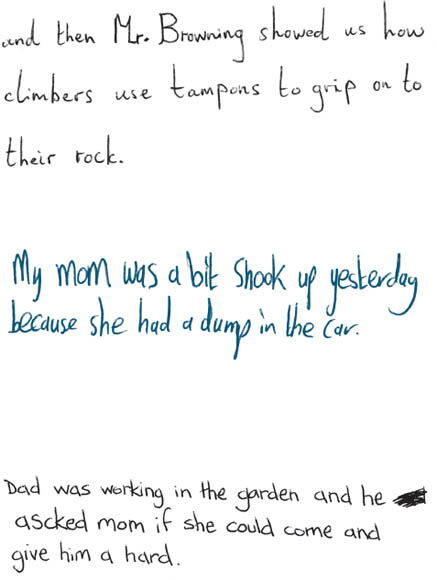 and then Mr. Browning showed us how
climbers use tampons to grip on to
their rock.
My mom was a bit shook up yesterday
because she had a dump in the car.
Dad was working in the garden and he
ascked mom if she could come and
give him a hard.